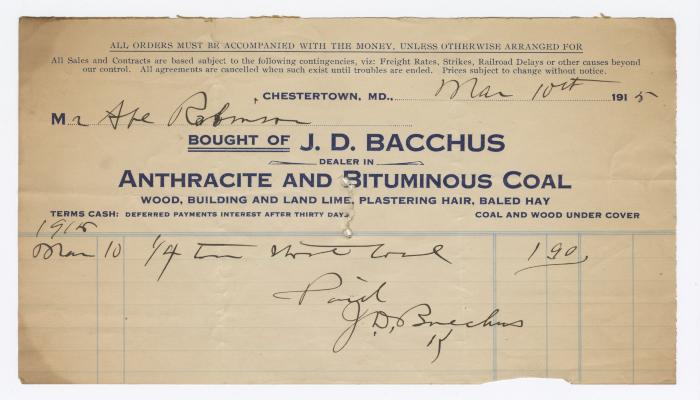 ALL ORDERS MUST BE ACCOMPANIED WITH THE MONEY, UNLESS OTHERWISE ARRANGED FOR
All Sales and Contracts are based subject to the following contingencies, viz: Freight Rates, Strikes, Railroad Delays or other causes beyond
our control. All agreements are cancelled when such exist until troubles are ended. Prices subject to change without notice.
CHESTERTOWN, MD., Mar 10th 1915
Mr Abe Robinson
BOUGHT OF J. D. BACCHUS
DEALER IN
ANTHRACITE AND BITUMINOUS COAL
WOOD, BUILDING AND LAND LIME, PLASTERING HAIR, BALED HAY
TERMS CASH: DEFERRED PAYMENTS INTEREST AFTER THIRTY DAYS COAL AND WOOD UNDER COVER
1915
Mar 10 1/4 ton Stove Coal 1 90
Paid
J. D. Bacchus